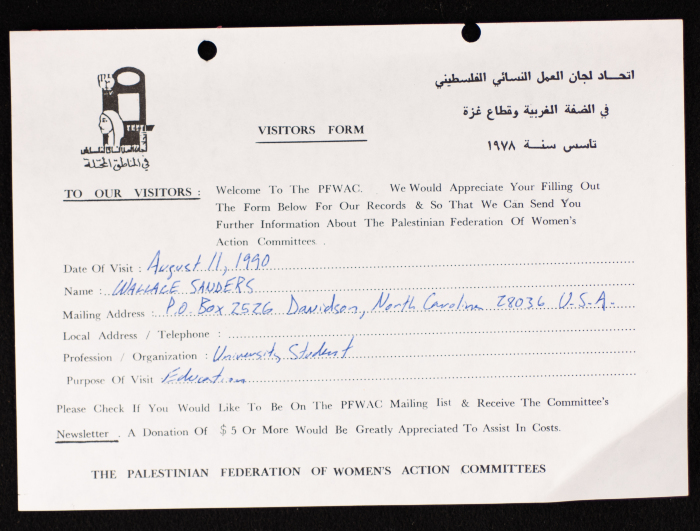 اتحاد لجان العمل النسائي الفلسطيني
في الضفة الغربية وقطاع غزة
تأسس سنة ١٩٧٨
في المناطق المحتلة
VISITORS FORM
TO OUR VISITORS : Welcome To The PFWAC. We Would Appreciate Your Filling Out
The Form Below For Our Records & So That We Can Send You
Further Information About The Palestinian Federation Of Women's
Action Committees. .
Date Of Visit : August 11, 1990
Name : WALLACE SANDERS
Mailing Address : P.O. Box 2526 Davidson, North Carolina 28036 U.S.A.
Local Address / Telephone :
Profession / Organization : University Student
Purpose Of Visit Education
Please Check If You Would Like To Be On The PFWAC Mailing list & Receive The Committee's
Newsletter . A Donation Of $ 5 Or More Would Be Greatly Appreciated To Assist In Costs.
THE PALESTINIAN FEDERATION OF WOMEN'S ACTION COMMITTEES